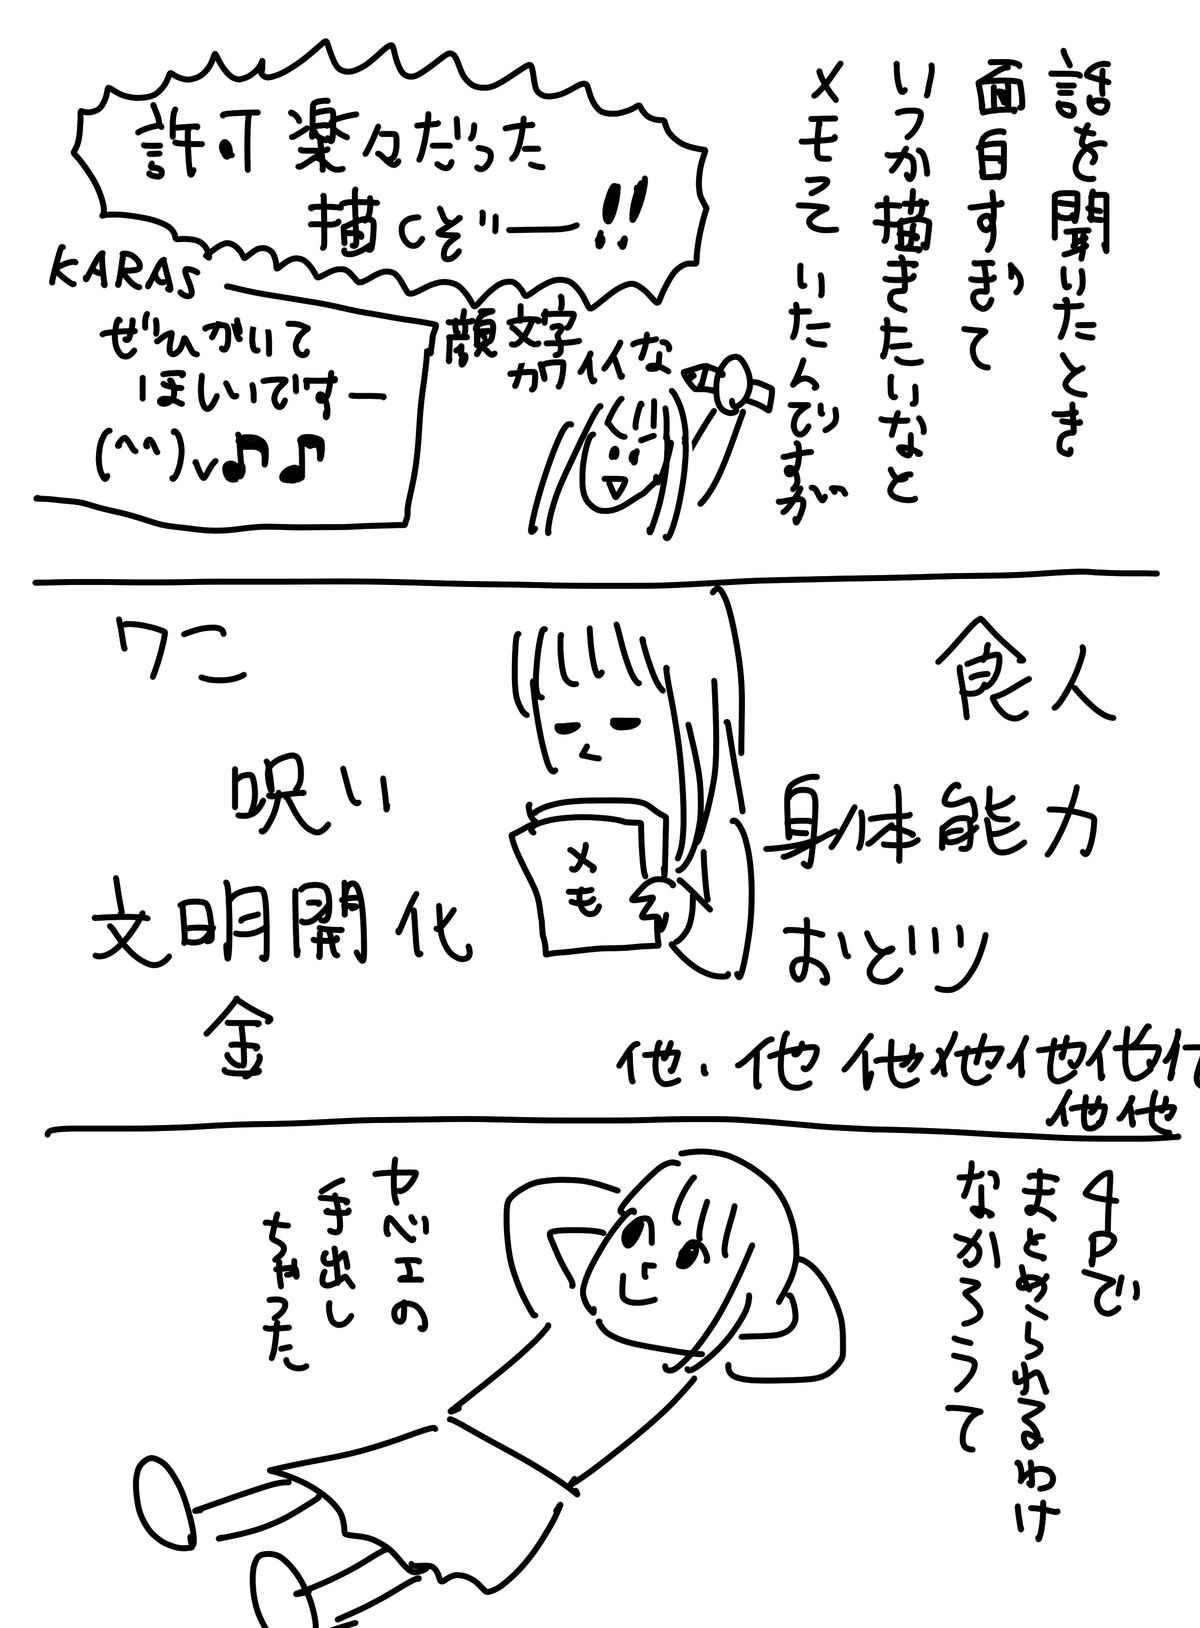 話を聞いたとき
面白すぎて
いつか描きたいなと
メモって いたんですが
許可 楽々だった
描くぞー!!
KARAS
ぜひかいて
ほしいですー
(^^)v♪♪
顔文字
カワイイな
食人
身体能力
おどり
他.他 他他他他他
他他
メモ
ワニ
呪い
文明開化
金
4Pで
まとめられるわけ
なかろうて
ヤベエの
手出し
ちゃった